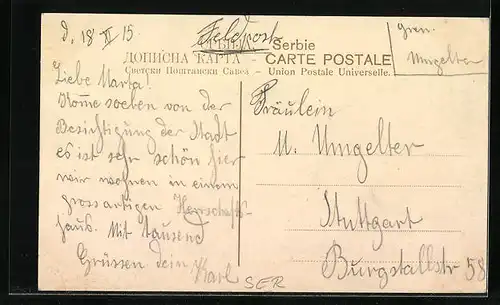 d. 18 XI 15.
Feldpost
Gren.
Umgelter
Serbie
ДОПИСНА КАРТА — CARTE POSTALE
Светски Поштански Савез — Union Postale Universelle.
Liebe Marta!
Kom̄e soeben von der
Besichtigung der Stadt
es ist sehr schön hier
wir wohnen in einem
grossartigen Herrschafts-
haus. Mit tausend
Grüssen dein Karl
Fräulein
M. Umgelter
Stuttgart
Burgstallstr 58
SER